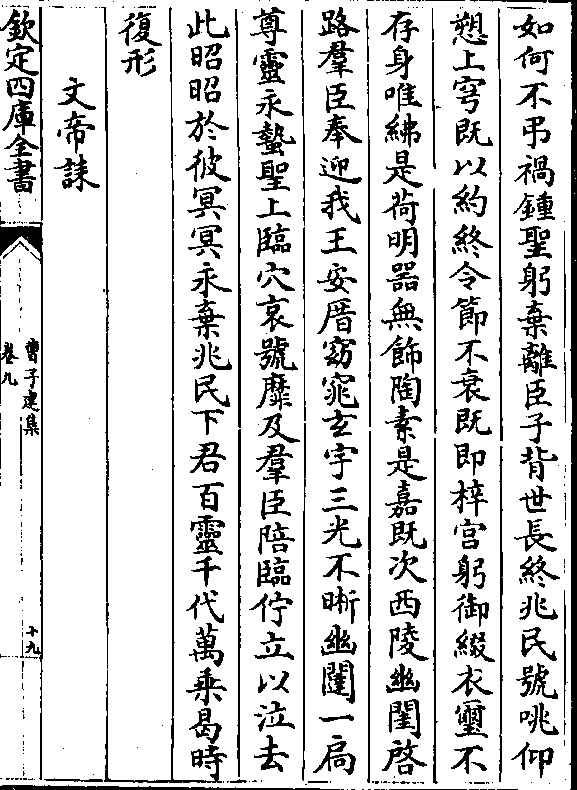 如何不弔禍鍾聖躬棄離臣子背世長終兆民號咷仰
愬上穹既以約終令節不衰既即梓宮躬御綴衣璽不
存身唯紼是荷明器無飾陶素是嘉既次西陵幽閨啓
路羣臣奉迎我王安厝窈窕玄宇三光不晰幽闥一扃
尊靈永蟄聖上臨穴哀號靡及羣臣陪臨佇立以泣去
此昭昭於彼冥冥永棄兆民下君百靈千代萬乘曷時
復形
文帝誄
欽定四庫全書
曹子建集
卷九
十九